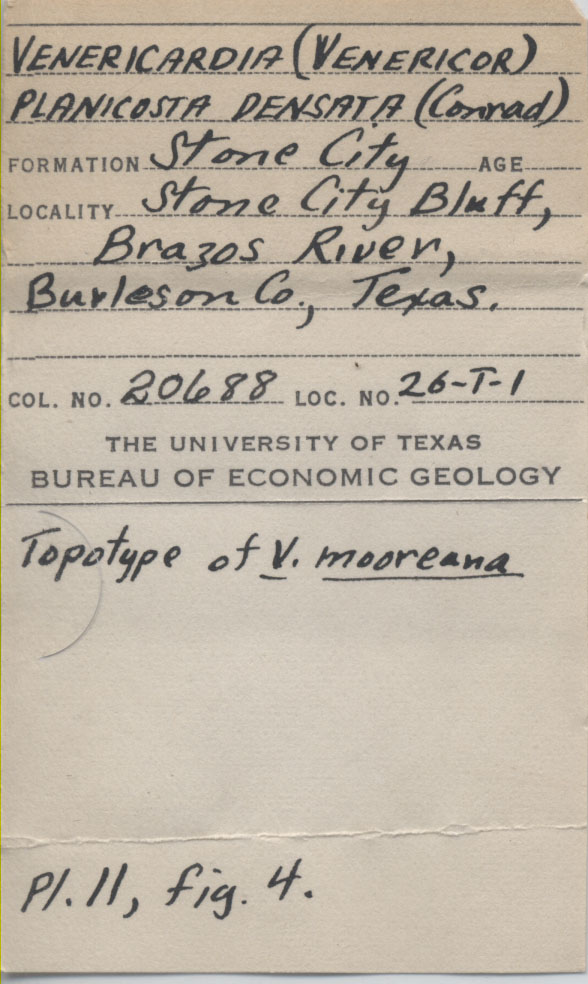 VENERICARDIA (VENERICOR)
PLANICOSTA DENSATA (Conrad)
FORMATION Stone City AGE
LOCALITY Stone City Bluff,
Brazos River,
Burleson Co., Texas.
COL. NO. 20688 LOC. NO. 26-T-1
THE UNIVERSITY OF TEXAS
BUREAU OF ECONOMIC GEOLOGY
Topotype of V. mooreana
Pl. 11, fig. 4.